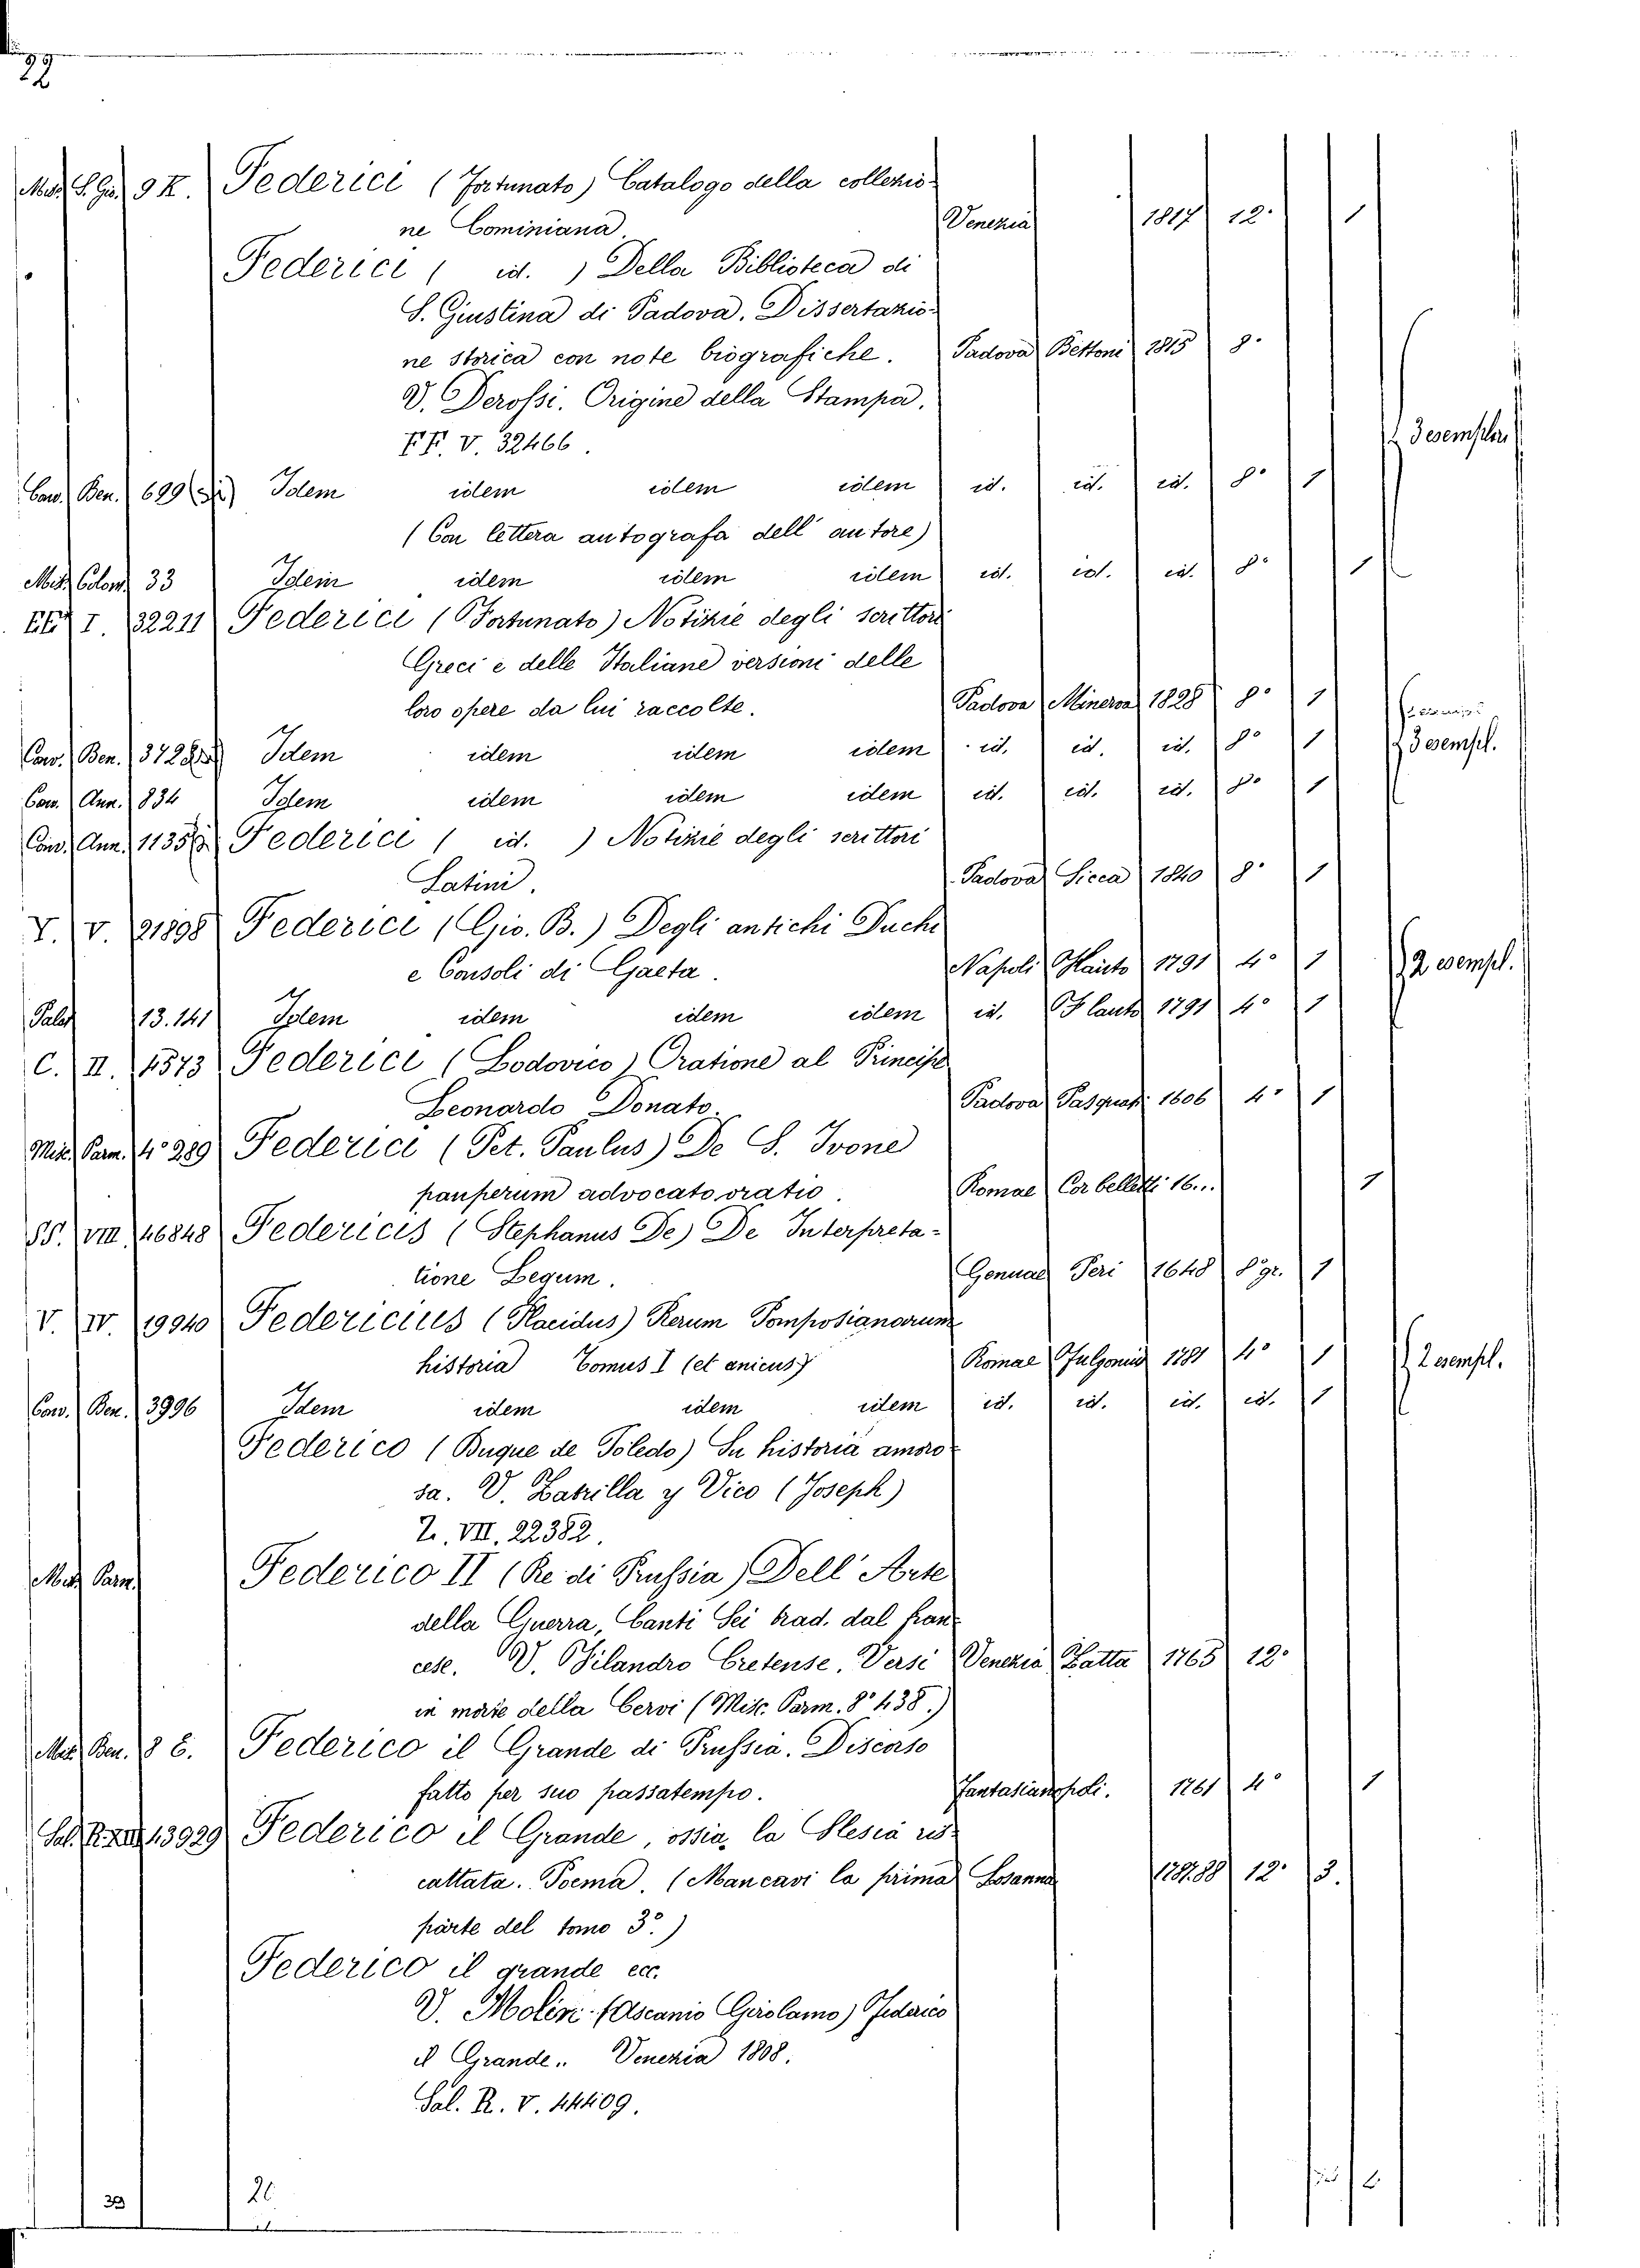 22
Misc. S. Gio. 9 K. Federici (Fortunato) Catalogo della collezio-
ne Cominiana. Venezia 1817 12° 1
Federici ( id. ) Della Biblioteca di
S. Giustina di Padova. Dissertazio-
ne storica con note biografiche. Padova Bettoni 1815 8°
V. Derossi. Origine della Stampa.
FF. V. 32466. 3 esemplari
Conv. Ben. 699 Idem idem idem idem id. id. id. 8° 1
(Con lettera autografa dell' autore)
Misc. Colomb. 33 Idem idem idem idem id. id. id. 8° 1
I. 32211 Federici (Fortunato) Notizie degli scrittori
Greci e delle Italiane versioni delle
loro opere da lui raccolte. Padova Minerva 1828 8° 1
Conv. Ben. 3728 Idem idem idem idem id. id. id. 8° 1 3 esempl.
Conv. Ann. 834 Idem idem idem idem id. id. id. 8° 1
Conv. Ann. 1135 Federici ( id. ) Notizie degli scrittori
Latini. Padova Sicca 1840 8° 1
Y. V. 21898 Federici (Gio. B.) Degli antichi Duchi
e Consoli di Gaeta. Napoli Flauto 1791 4° 1 2 esempl.
Palat 13.141 Idem idem idem idem id. Flauto 1791 4° 1
C. II. 4573 Federici (Lodovico) Oratione al Principe
Leonardo Donato. Padova Pasquati 1606 4° 1
Misc. Parm. 4° 289 Federici (Pet. Paulus) De S. Ivone
pauperum advocato oratio. Romae Corbelletti 16... 1
SS. VIII. 46848 Federicis (Stephanus De) De Interpreta-
tione Legum. Genuae Peri 1648 8° gr. 1
V. IV. 19940 Federicius (Placidus) Rerum Pomposianarum
historia Tomus I (et unicus) Romae Fulgonius 1781 4° 1 2 esempl.
Conv. Ben. 3996 Idem idem idem idem id. id. id. id. 1
Federico (Buque de Toledo) Su historia amoro-
sa. V. Zatrilla y Vico (Joseph)
Z. VII. 22382.
Misc. Parm. Federico II (Re di Prussia) Dell' Arte
della Guerra, Canti Sei trad. dal fran-
cese. V. Filandro Cretense. Versi Venezia Zatta 1765 12°
in morte della Cervi (Misc. Parm. 8° 438.)
Misc. Ben. 8 6. Federico il Grande di Prussia. Discorso
fatto per suo passatempo. Fantasianopoli. 1761 4° 1
Sal. R. XIII 13929 Federico il Grande, ossia, la Slesia ris-
cattata. Poema. (Mancavi la prima Losanna 1787.88 12° 3.
parte del tomo 3°.)
Federico il grande ecc.
V. Molin (Ascanio Girolamo) Federico
il Grande.. Venezia 1808.
Sal. R. V. 44409.